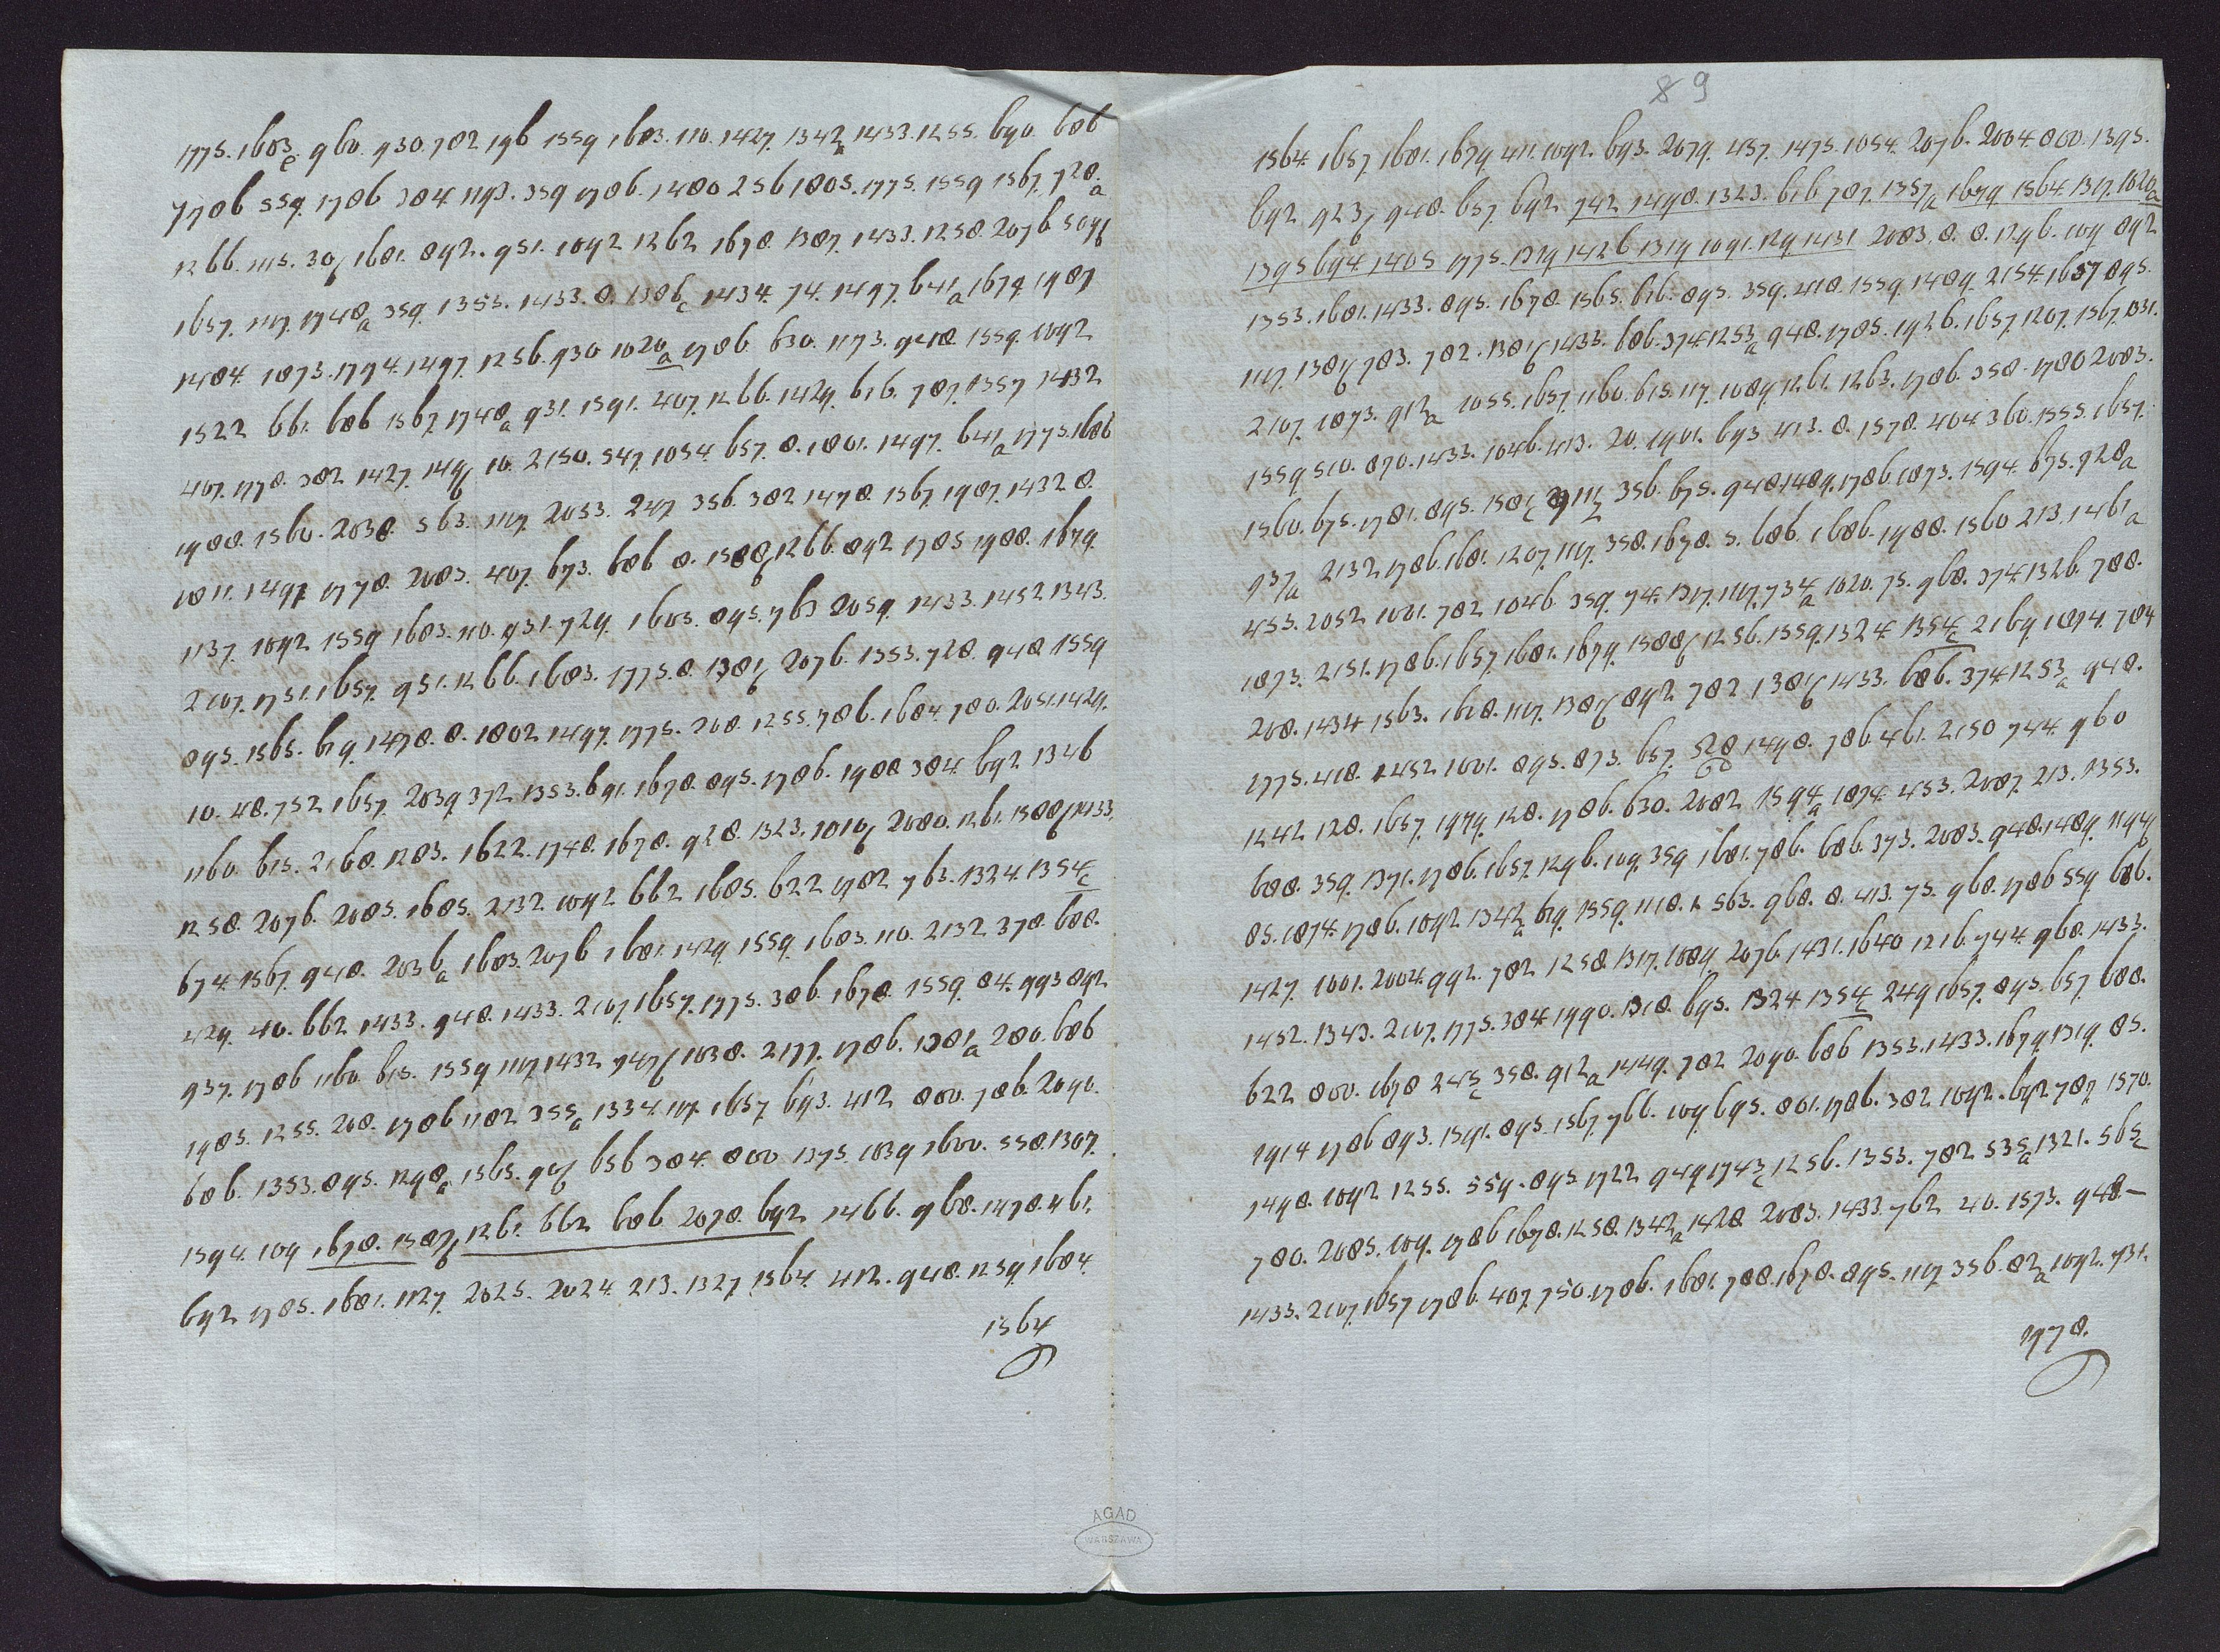 1775. 1603e. 960. 930. 782 196 1559 1603. 110. 1427. 1342a 1433. 1255. 690. 686
7786 559. 1786 384. 1193. 359 1786. 1480 256 1805. 1775. 1559 1567. 728.a
1266. 1115. 301 1681. 892. 951. 1092 1262 1678. 1387. 1433. 1258. 2076
1657. 1117. 1748a 359. 1353. 1433. 8. 1386c 1434. 74. 1497. 641a 1679 1987
1484. 1873. 1794. 1497. 1256. 930 1020a 1786. 630. 1173. 948 1559. 1092
1522 661. 686 1567. 1748a 931. 1591. 407. 1266. 1429. 616. 787. 1357 1432
407. 1778. 382 1427. 10. 2150. 547. 1054. 657. 8. 1801. 1497. 641a 1775. 1686
1988. 1560. 2038. 563. 1117. 2053. 247 356. 382 1478. 1567. 1987. 1432 8.
1811. 1497 1778. 2083. 407. 673. 686 8. 1266. 892 1785 1988. 1679.
1137. 1092 1559 1683. 110. 931. 729. 1683. 895. 763 2059. 1433. 1452 1343.
2107. 1751. 1657. 951. 1266. 1683. 1775. 8. 2076. 1353. 728. 948 1559
895. 1565. 619. 1478. 8. 1802 1497. 1775. 208. 1255. 786. 1684. 780. 2051. 1429.
10. 48. 752 1657. 2039. 372 1353. 691. 1678. 895. 1786. 1988 384. 692 1346
1160. 615. 2168. 1283. 1622. 1748. 1678. 928. 1323. 2080. 1261. 1433.
1258. 2076. 2085. 1685. 2132 1092 662 1685. 622 1782 763. 1324. 1354c
674. 1567. 948. 2036a 1683. 2076 1681. 1429. 1559. 1683. 110. 2132 378. 688.
429. 40. 662 1433. 948. 1433. 2107. 1657. 1775. 386. 1678. 1559. 84. 993 892
937. 1786 1160. 615. 1559 1117. 1432 1038. 2177. 1786. 1381a 280. 686
1985. 1255. 208. 1786 1182 355a 1334. 117. 1657 693. 412 800. 786. 2090.
686. 1353. 895. 1298a 1565. 656 384. 800 1375. 1839 1600. 558. 1307.
1594. 109 1678. 1261. 662 686 2078. 692 1466. 968. 1478. 461.
692 1785. 1681. 1127. 2025. 2024. 213. 1327 1564. 412. 948. 1259 1684.
1564
89
1564. 1657. 1681. 1679. 411. 1092. 693. 2079. 457. 1475. 1054. 2076. 2004. 800. 1395.
692. 948. 657. 692 742 1498. 1323. 616 787. 1357a 1679. 1564. 1317. 1020a
1395 694. 1405 1775. 1319 1426 1319 1091. 129 1431 2083. 8. 8. 1296. 109 892
1353. 1681. 1433. 895. 1678. 1565. 616. 895. 359. 418. 1559. 1489. 2154. 1657 895.
1117. 783. 782. 1433. 686. 374. 1253a 948. 1785. 1926. 1657. 1207. 1567. 1031.
2107. 1873. 912a 1055. 1657. 1160. 615. 117. 1089 1261. 1263. 1786. 358. 1780 2083.
1559 510. 870. 1433. 1046. 413. 20. 1901. 693 413. 8. 1578. 404 360. 1555. 1657.
1560. 675. 1781. 895. 356. 675. 948 1489. 1786. 1873. 1594. 675. 928a
937a 2132 1786. 1681. 1207. 1117. 358. 1678. 5. 686. 1686. 1988. 1560 213. 1461a
453. 2052 1001. 782 1046 359. 74. 1317. 1117. 734a 1020. 75. 968. 374. 1326. 788.
1873. 2151. 1786. 1657. 1681. 1679. 1256. 1559. 1324. 1354c 2169 1894. 784
208. 1434 1563. 1628. 1117. 892 782 1433. 686. 374 1253a 948.
1775. 418. 1452 1001. 895. 873. 657. 1498. 786. 461. 2150 744. 960
1242 128. 1657. 1979. 128. 1786. 630. 2082 1594a 1874. 453. 2087. 213. 1353.
688. 359. 1371. 1786. 1657. 1296. 109. 359 1681. 786. 686. 373. 2083. 948. 1489.
85. 1874. 1786. 1092. 1342a 619. 1559. 1118. 563. 968. 8. 413. 75. 968. 1786 559 686.
1427. 1001. 2004. 992. 782 1258. 1317. 1089 2076. 1431. 1640 1216. 744. 968. 1433.
1452. 1343. 2107. 1775. 384. 1990. 1318. 695. 1324 1354c 249 1657. 895. 657 688.
622 800. 1678 245c 358. 912a 1449. 782 2090. 686 1353. 1433. 1679. 1319. 85.
1914 1786 893. 1591. 895. 1567. 766. 109 695. 861. 1786. 382 1092. 692 787 1570.
1498. 1092 1255. 559. 895 1722 949 1743c 1256. 1353. 782 535a 1321. 565c
780. 2085. 109. 1786 1678. 1258. 1342a 1428. 2083. 1433. 762 40. 1573. 948.—
1433. 2107. 1657 1786. 407. 750. 1786. 1681. 788. 1678. 895. 1117 356. 82a 1092. 731.
1978.
AGAD
WARSZAWA